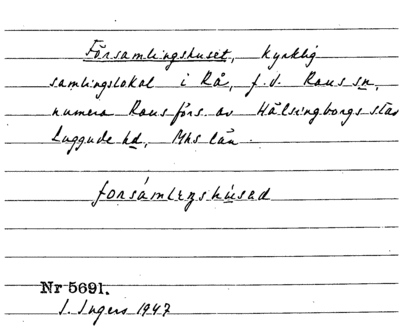 Församlingshuset, kyrklig
samlingslokal i Rå, f.d. Raus sn,
numera Raus förs. av Hälsingborgs stad
Luggude hd, Mhs län.
forsámlıŋshúsəd
Nr 5691.
I. Ingers 1947